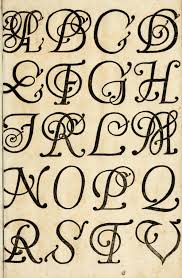 A B C D
E F G H
I K L M
N O P Q
R S T V